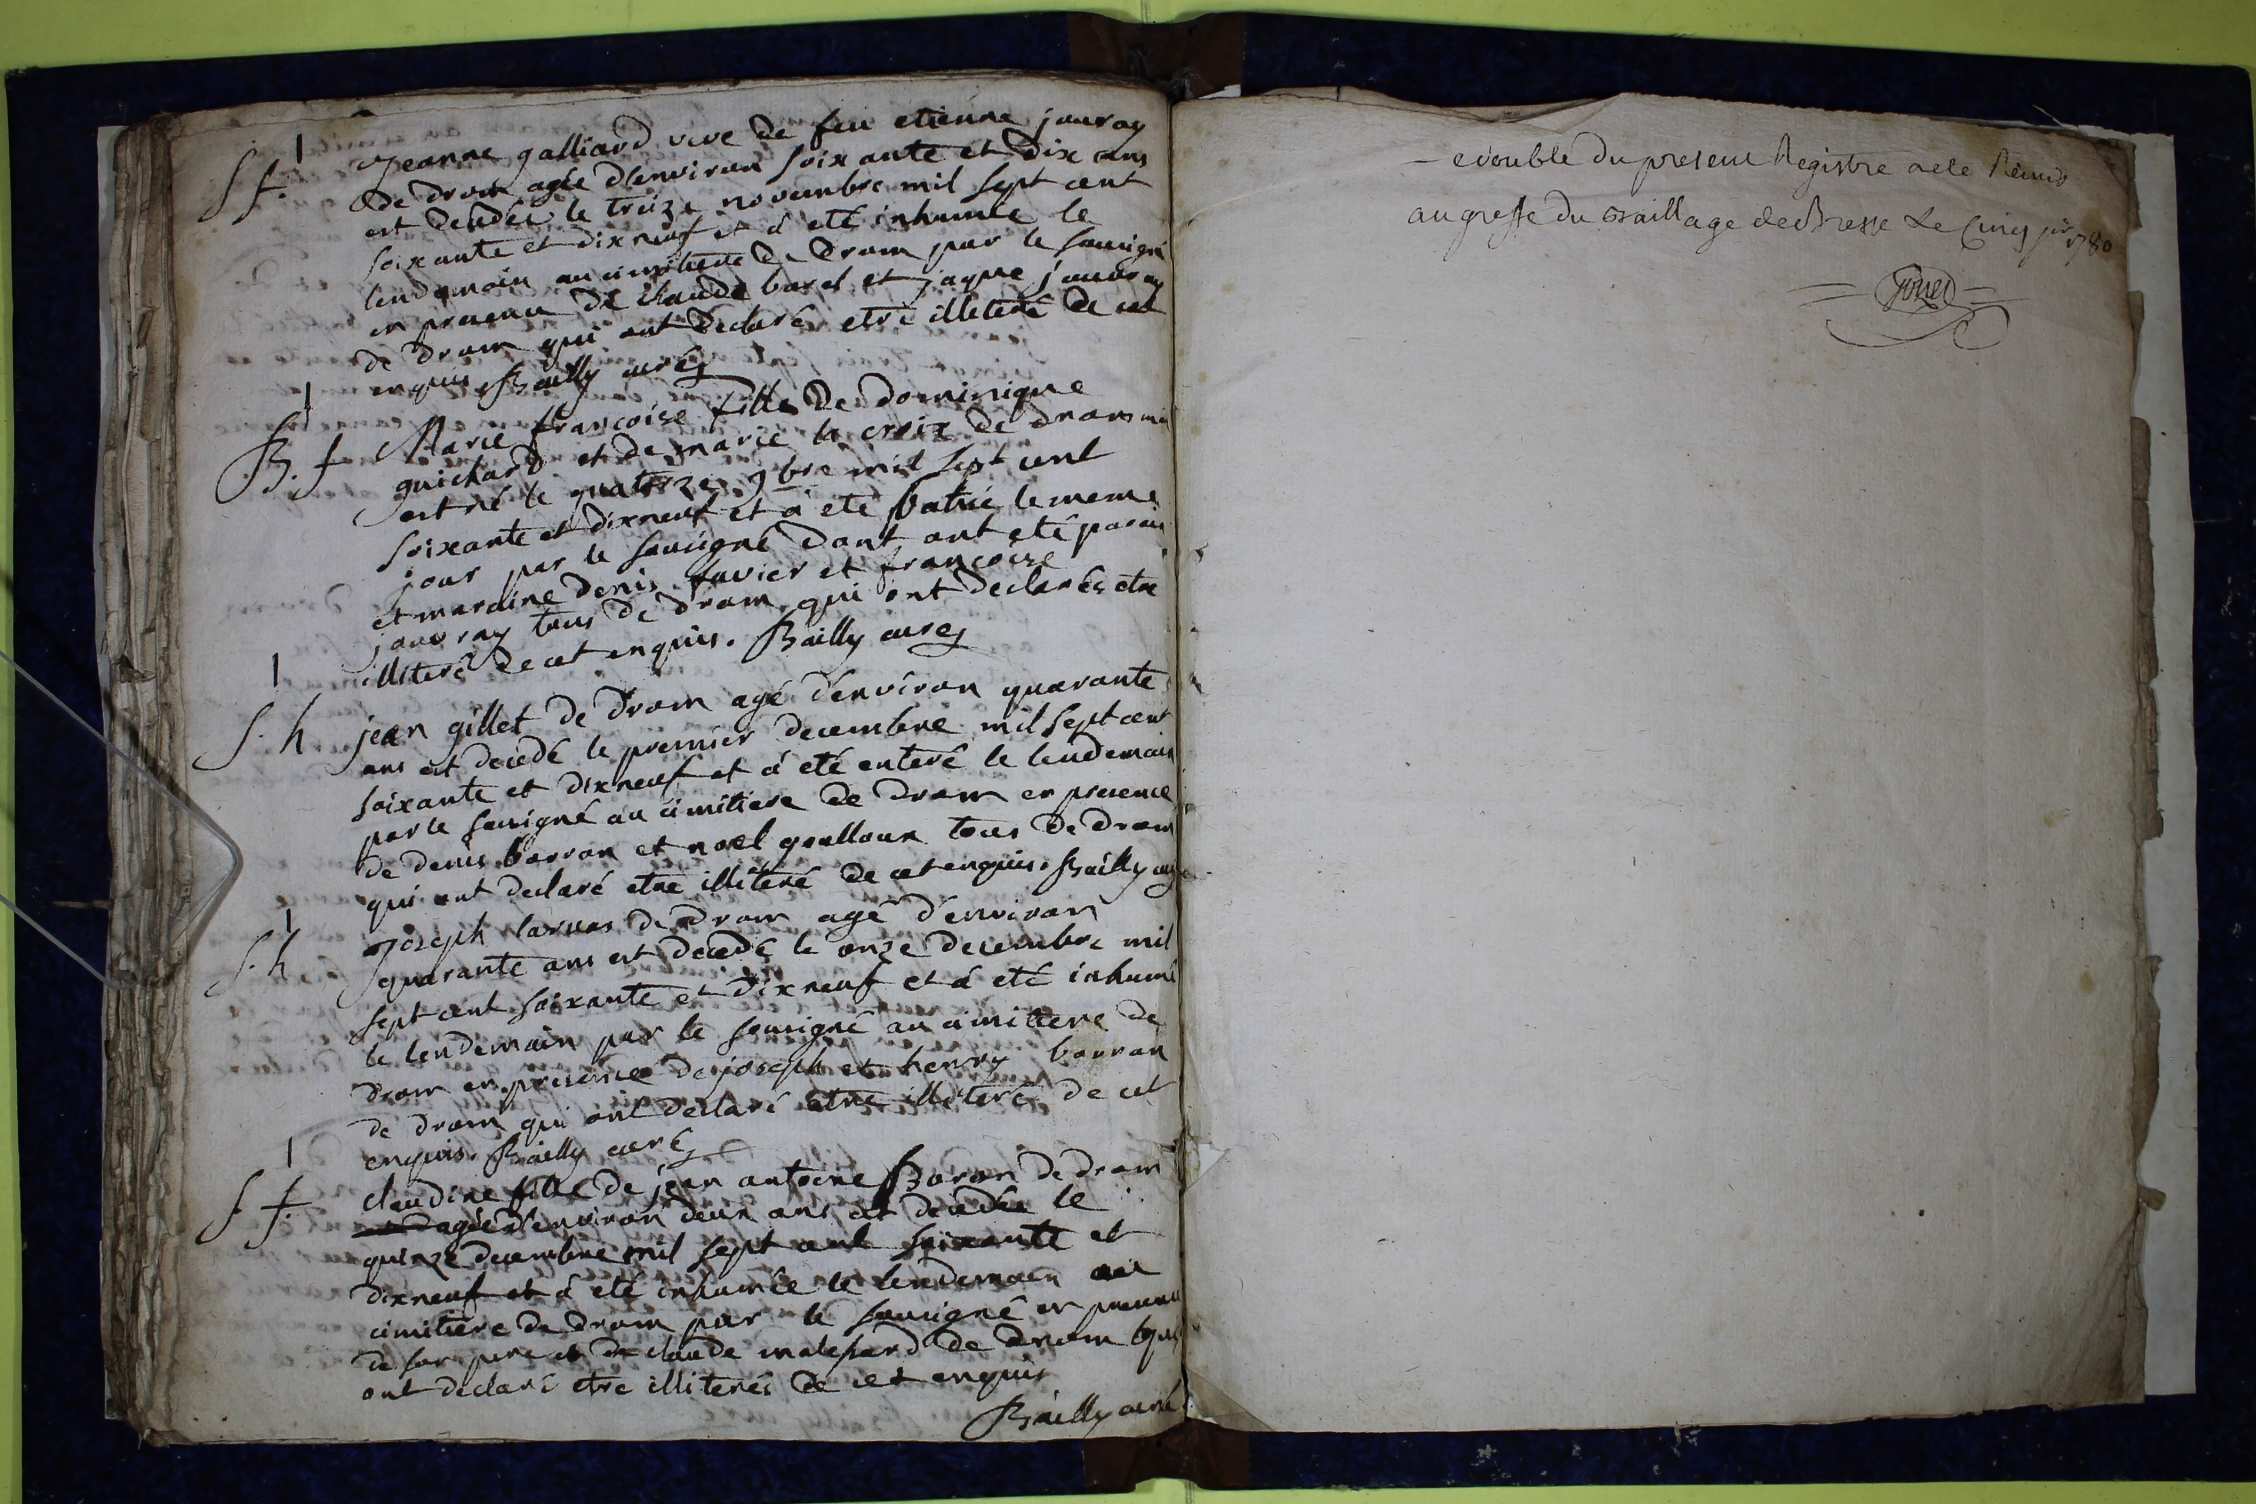 1
S f. Jeanne galliard vve de feu etienne jauvray
de drom agée d'environ soixante et dix ans
est decedée le treize novembre mil sept cent
soixante et dixneuf et à eté inhumée le
lendemain au cimitiere de drom par le sousigné
en presence de claude borel et jaque jauvray
de drom qui ont declaré etre illiteré de cet
enquis. Bailly curé
1
B. f Marie françoise fille de dominique
guichard et de marie la croix de drom
est né le quatorze 9bre mil sept cent
soixante et dixneuf et à eté batisé le meme
jour par le sousigné dont ont eté parain
et maraine denis favier et françoise
jauvray tous de drom qui ont declarés etre
illiteré de cet enquis. Bailly curé
1
S. h jean gillet de drom agé d'environ quarante
ans est decedé le premier decembre mil sept cent
soixante et dixneuf et à eté enteré le lendemain
par le sousigné au cimitiere de drom en presence
de denis borron et noel goulloux tous de drom
qui ont declaré etre illiteré de cet enquis. Bailly curé
1
S. h Joseph larvas de drom agé d'environ
quarante ans est decedé le onze decembre mil
sept cent soixante et dixneuf et à eté inhumé
le lendemain par le sousigné au cimitiere de
drom en presence de joseph et henry borron
de drom qui ont declaré etre illiteré de cet
enquis. Bailly curé
1
S f. claudine fille de jean antoine Boron de drom
agée d'environ deux ans est decedée le
quinze decembre mil sept cent soixante et
dixneuf et à eté inhumée le lendemain au
cimitiere de drom par le sousigné en presence
de son pere et de claude malefard de drom qui
ont declaré etre illiterés de cet enquis
Bailly curé
double du present Registre a ete Remis
au greffe du Baillage de Bresse Le Cinq jer 1780